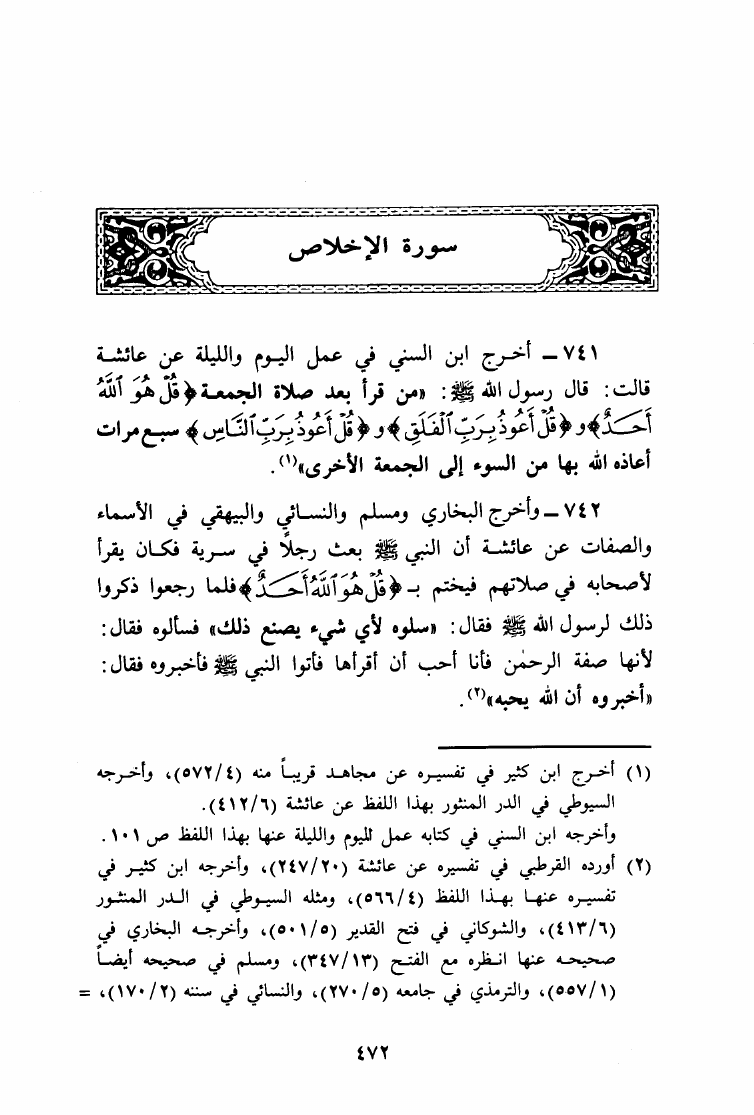 سورة الإخلاص
٧٤١ ـ أخرج ابن السني في عمل اليوم والليلة عن عائشة
قالت: قال رسول الله ﷺ: «من قرأ بعد صلاة الجمعة ﴿قُلْ هُوَ ٱللَّهُ
أَحَدٌ﴾ و﴿قُلْ أَعُوذُ بِرَبِّ ٱلْفَلَقِ﴾ و﴿قُلْ أَعُوذُ بِرَبِّ ٱلنَّاسِ﴾ سبع مرات
أعاذه الله بها من السوء إلى الجمعة الأخرى»(١).
٧٤٢ ـ وأخرج البخاري ومسلم والنسائي والبيهقي في الأسماء
والصفات عن عائشة أن النبي ﷺ بعث رجلًا في سرية فكان يقرأ
لأصحابه في صلاتهم فيختم بـ ﴿قُلْ هُوَ ٱللَّهُ أَحَدٌ﴾ فلما رجعوا ذكروا
ذلك لرسول الله ﷺ فقال: «سلوه لأي شيء يصنع ذلك» فسألوه فقال:
لأنها صفة الرحمٰن فأنا أحب أن أقرأها فأتوا النبي ﷺ فأخبروه فقال:
«أخبروه أن الله يحبه»(٢).
(١) أخرج ابن كثير في تفسيره عن مجاهد قريباً منه (٥٧٢/٤)، وأخرجه
السيوطي في الدر المنثور بهذا اللفظ عن عائشة (٤١٢/٦).
وأخرجه ابن السني في كتابه عمل لليوم والليلة عنها بهذا اللفظ ص ١٠١.
(٢) أورده القرطبي في تفسيره عن عائشة (٢٤٧/٢٠)، وأخرجه ابن كثير في
تفسيره عنها بهذا اللفظ (٥٦٦/٤)، ومثله السيوطي في الدر المنثور
(٤١٣/٦)، والشوكاني في فتح القدير (٥٠١/٥)، وأخرجه البخاري في
صحيحه عنها انظره مع الفتح (٣٤٧/١٣)، ومسلم في صحيحه أيضاً
(٥٥٧/١)، والترمذي في جامعه (٢٧٠/٥)، والنسائي في سننه (١٧٠/٢)، =
٤٧٢